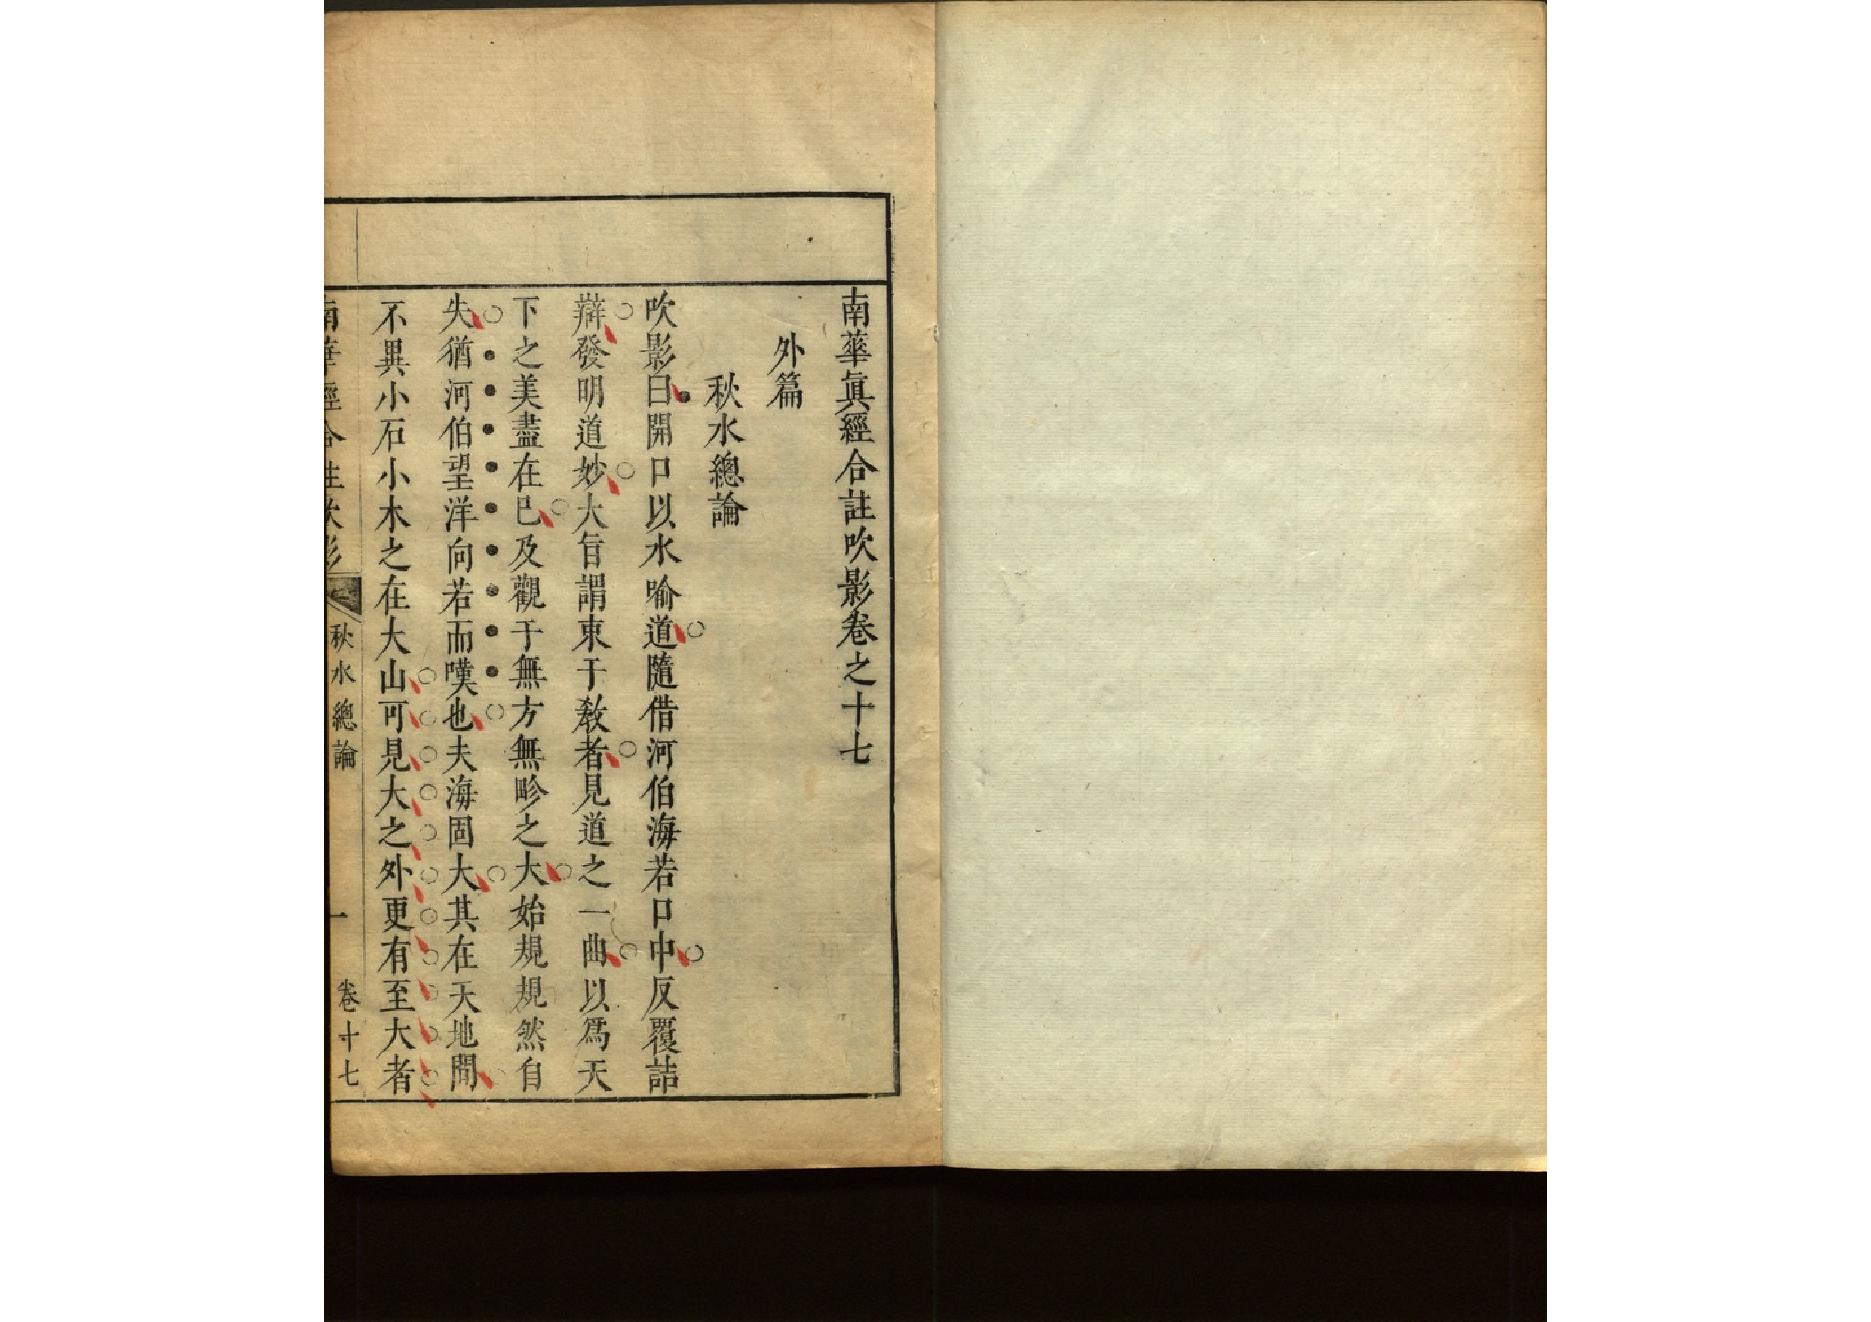 南華眞經合註吹影卷之十七
外篇
秋水總論
吹影曰開口以水喻道隨借河伯海若口中反覆詰
辯發明道妙大旨謂束于敎者見道之一曲以爲天
下之美盡在巳及觀于無方無畛之大始規規然自
失猶河伯望洋向若而嘆也夫海固大其在天地間
不異小石小木之在大山可見大之外更有至大者
南華經合註吹影 秋水總論 一 卷十七